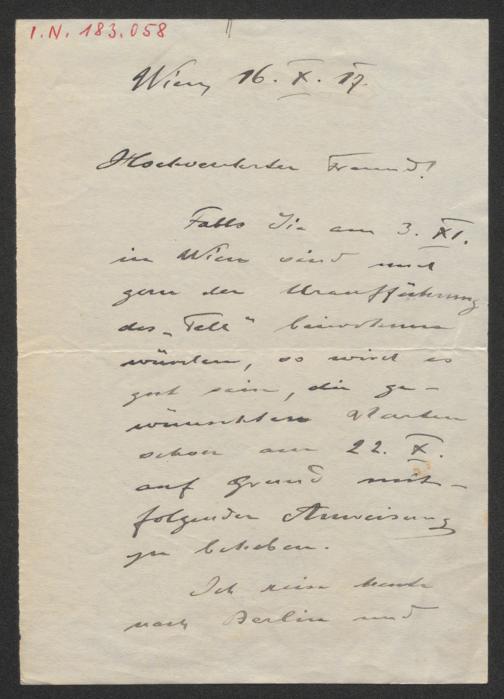 I.N. 183.058
Wien, 16. X. 17.
Hochverehrter Freund!
Falls Sie am 3. XI.
in Wien sind und
gern der Uraufführung
des „Tell“ beiwohnen
würden, so wird es
gut sein, die ge-
wünschten Karten
schon am 22. X.
auf Grund mit-
folgender Anweisung
zu beheben.
Ich reise heute
nach Berlin und